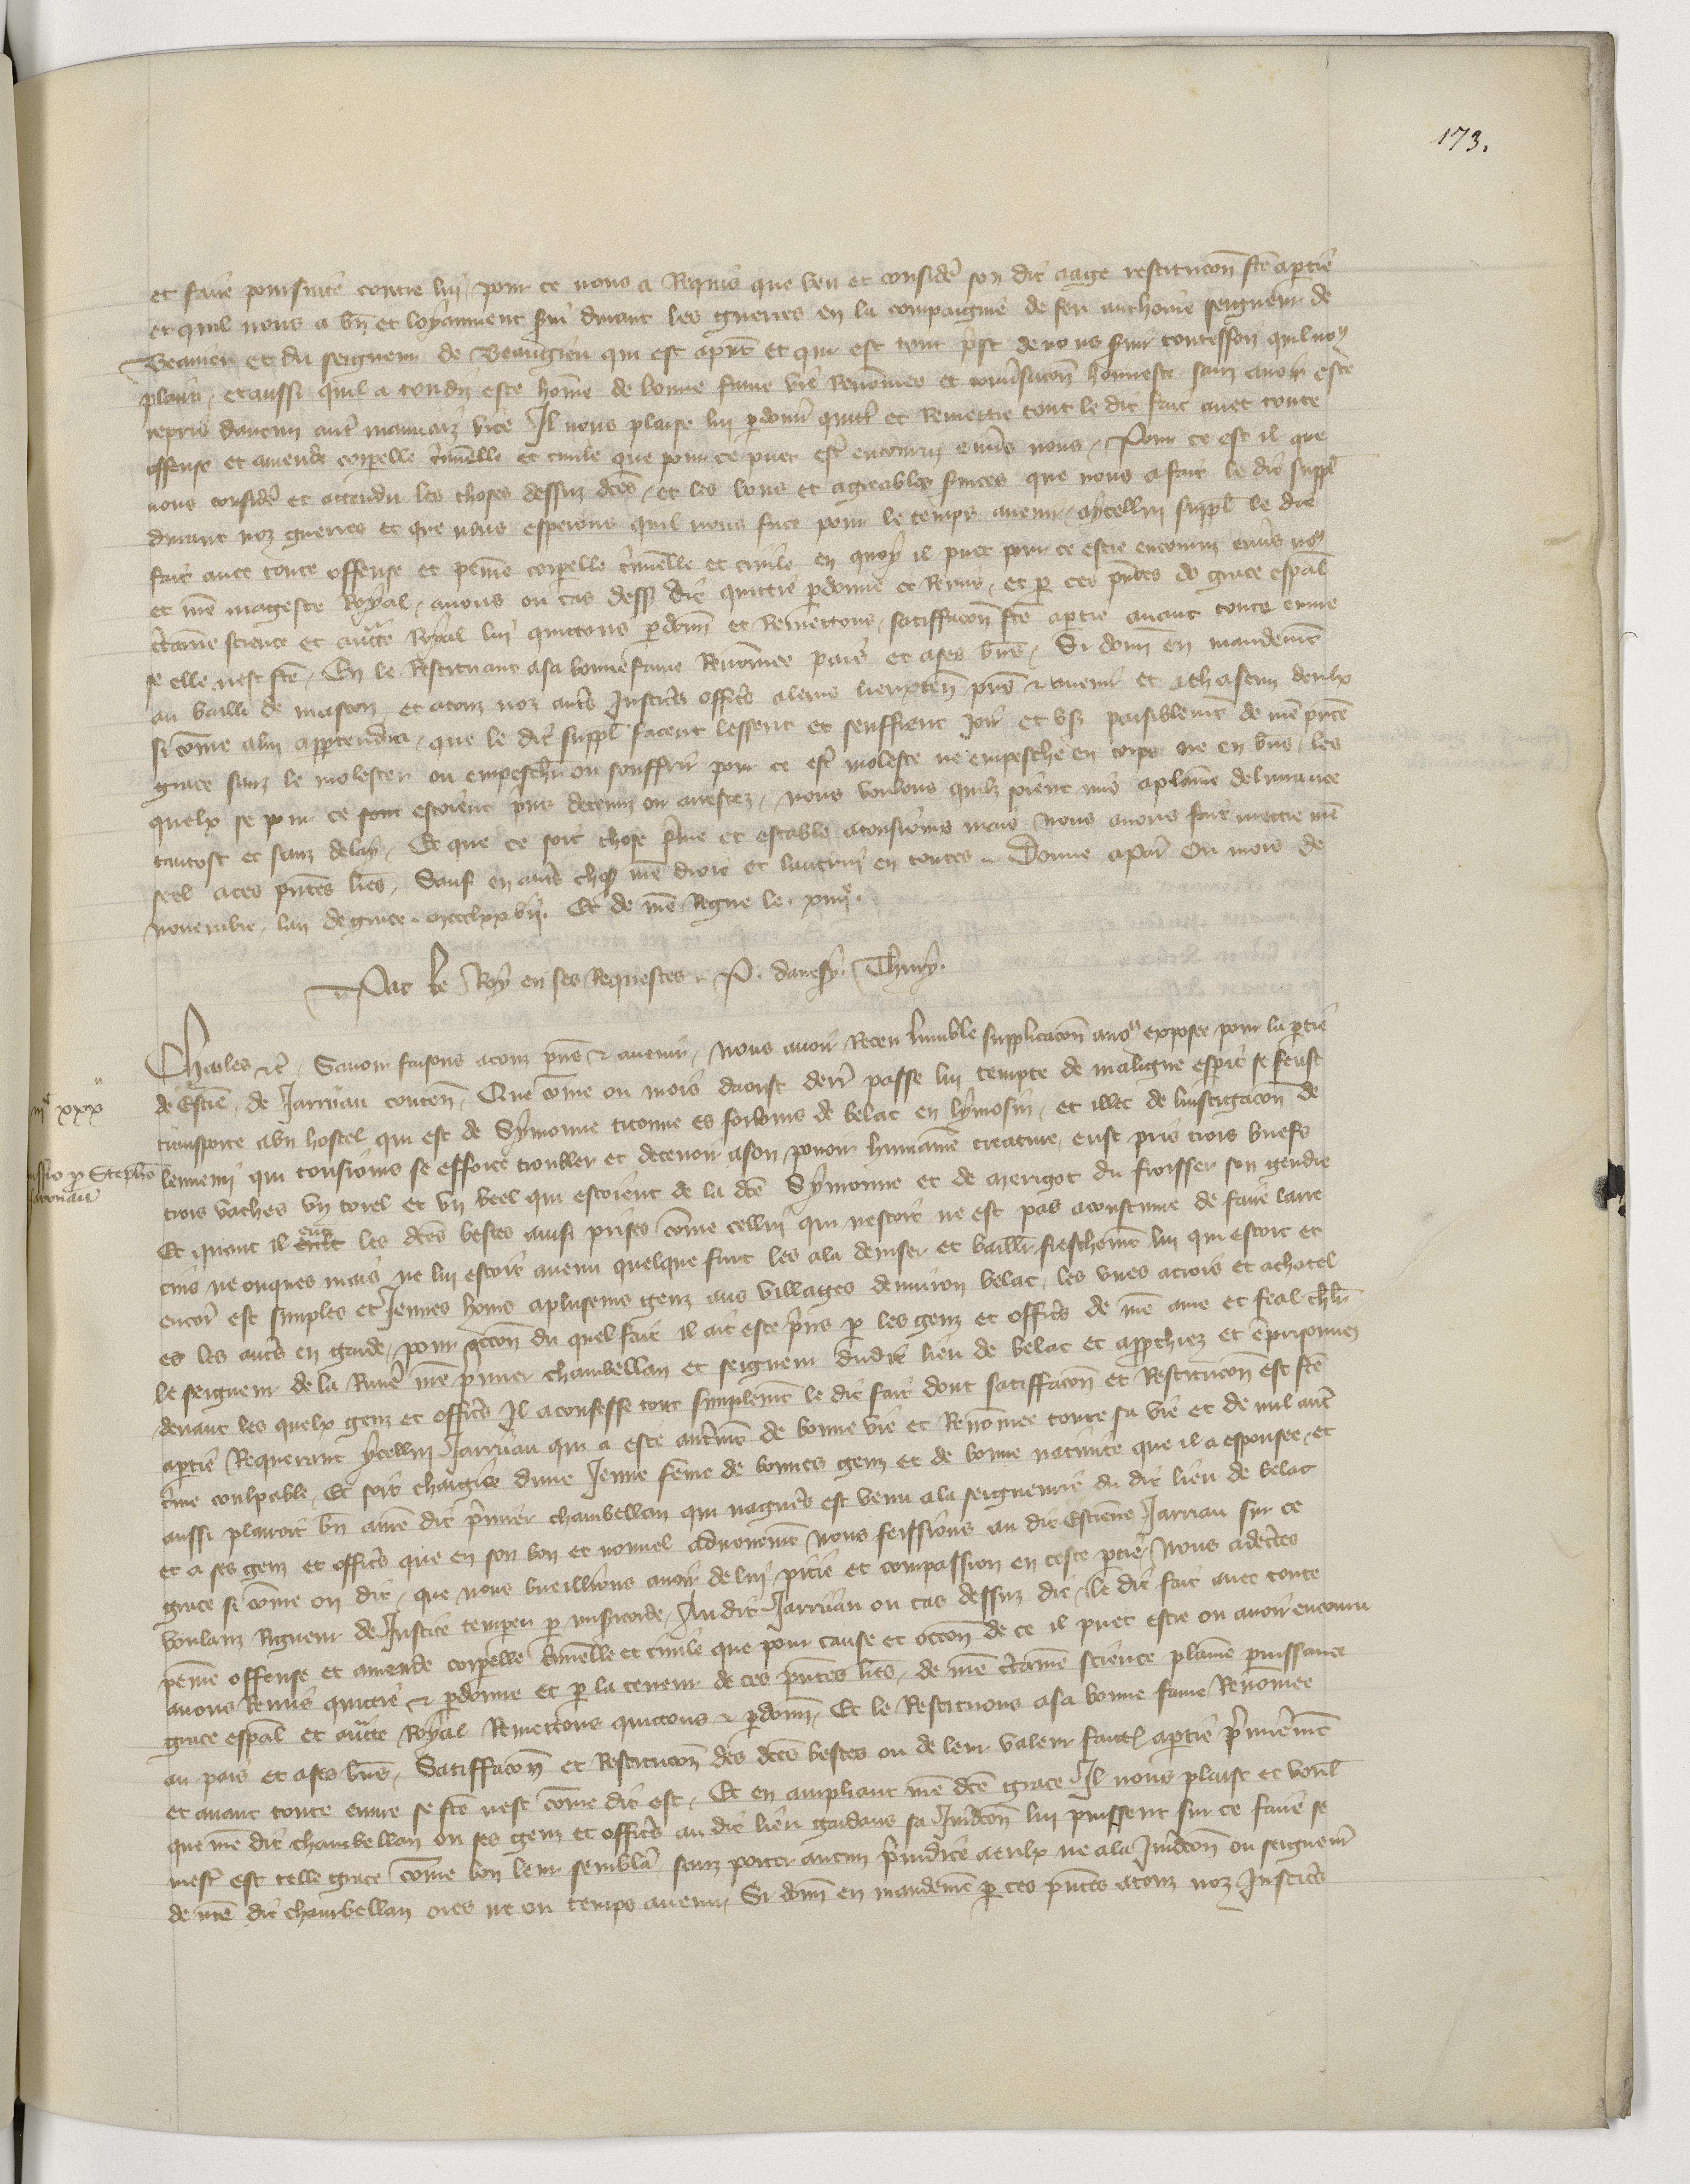 173.
et faire poursuite contre lui pour ce nous a Requis que veu et considere son dit aage restitucion fte a ptie
et quil nous a bn et loyaument s̃ui durant les guerres en la compaignie de feu anthoine seigneur de
Beauieu et du seigneur de Beaugieu qui est apñt et qui est tout prest de nous s̃uir toutesfois quil nous
plaira, et aussi quil a tondiz este hōme de bonne fame vie Renōmee et cōuersacōn honneste sanz auoir este
repris daucun autr̃ mauuaiz vice Il nous plaise lui pdonn̄ quitt̄ et Remettre tout le dit fait auec toute
offense et amende corpelle c̃minelle et ciuile que pour ce puet estr̃ encouruz enũs nous, Pour ce est il que
nous considr̃ et attendu les choses dessuz dc̃es, et les bons et agreables s̃uices que nous a fait le dit suppl̃
durant noz guerres et que nous esperons quil nous face pour le temps auenir, a ycellui suppl̃ le dit
fait auec toute offense et peine corpelle c̃minelle et ciuile en quoy il puet pour ce estre encouruz enũs no9
et ñre mageste Royal, auons ou cas dess9 dit quittie pdonne et Remis, et p ces p̃ntes de grace esp̃al
c̃taine science et auc̃te Royal lui quittons pdonn̄ et Remettons, satiffacōn fc̃e a ptie auant toute euure
se elle nest fc̃e, En le Restituant a sa bonne fame Renōmee pais et a ses bñs, Si donn̄ en mandem̃t
au bailli de mascon et a touz noz autr̃s Justic̃s offic̃s a leurs lieuxten̄ p̃ns et auenir et a chascun deulx
si cōme a lui appartendra, que le dit suppl̃ facent lessent et seuffrent joir et vs̃ paisiblem̃t de ñre p̃nte
grace sanz le molester ou empesch̃r ou souffrir pour ce estr̃ moleste ne empesche en corps ne en bñs, les
quelx se pour ce sont estoient prins detenuz ou arrestez, nous voulons quilz soient mis a plaine deliurance
tantost et sanz delay, Et que ce soit chose ferme et estable a tousiours mais nous auons fait mettre ñre
seel a ces p̃ntes l̃res, Sauf en autr̃s choses ñre droit et lautrui en toutes. Donne a Par̃ Ou mois de
nouembre, lan de grace. mccclxxvii. Et de ñre Regne le. xiiii⁠e.
Par le Roy en ses Requestes. P. dauesy. Thury.
Charles etc̃, Sauoir faisons a touz p̃ns et auenir, nous auoir Receu lumble supplicacōn a no9 exposee pour la ptie
de Estiē. de Jarruau conten̄, Que cōme ou mois daoust derr̃ passe lui tempte de maligne espit se feust
transporte a vn hostel qui est de Symonne ticonne es forbours de belac en lymosin, et illec de linstigacōn de
lennemi qui tousiours se efforce troubler et deceuoir a son pouoir humaine creature, eust pris trois buefs
trois vaches vn torel et vn veel qui estoient de la dc̃e Symonne et de merigot du froisser son gendre
Et quant il eult eut les dc̃es bestes ainsi prises cōme cellui qui nestoit ne est pas acoustume de faire larre
cins ne onques mais ne lui estoit auenu quelque furt les ala deuiser et baill̃r freschem̃t lui qui estoit et
encor̃ est simples et Jeunes homs a pluseurs genz aus villages denuiron belac, les vnes a crois et a chatel
et les autr̃s en garde, pour occ̃on du quel fait il ait este pris p les genz et offic̃s de ñre ame et feal ch̃lr
le seigneur de la Riuier̃ ñre premier chambellan et seigneur dudit lieu de belac et approchiez et ēprisonnez
deuant les quelx genz et offic̃s Il a confesse tout simplem̃t le dit fait dont satiffacōn et Restitucōn est fc̃e
a ptie Requerant ycellui Jarruau qui a este autrem̃t de bonne vie et Renōmee toute sa vie et de nul autr̃
c̃ime coulpable, Et soit chargiee dune Jeune fēme de bonnes genz et de bonne natiuite que il a espousee, et
aussi plairoit bn a ñre dit p̃mier chambellan qui nagueres est venu a la seigneurie du dit lieu de belac
et a ses genz et offic̃s que en son bon et nouuel aduenem̃t nous feissions au dit Estienne Jarruau sur ce
grace si cōme on dit, que nous vueillions auoir de lui pitie et compassion en ceste ptie, Nous adec̃tes
voulanz Rigueur de Justice tempeu p mis̃icorde, Au dit Jarruau ou cas dessuz dit, le dit fait auec toute
peine offense et amende corpelle c̃minelle et ciuile que pour cause et occ̃on de ce il puet estre ou auoir encouru
auons Remis quittie et pdonne et p la teneur de ces p̃ntes l̃res, de ñre c̃taine science plaine puissance
grace esp̃al et auc̃te Royal Remettons quittons et pdonn̄, Et le Restituons a sa bonne fame Renōmee
au pais et a ses bñs, Satiffacōn et Restitucōn des dc̃es bestes ou de leur valeur faitte a ptie p̃mierem̃t
et auant toute euure se fc̃e nest cōme dit est, Et en ampliant ñre dc̃e grace Il nous plaist et voul̃
que ñre dit chambellan ou ses genz et offic̃s au dit lieu gardans sa Juridc̃on lui puissent sur ce faire se
mestr̃ est telle grace cōme bon leur semblera sanz porter aucun p̃iudice a eulx ne a la Juridc̃on ou seigneur̃
de ñre dit chambellan ores ne ou temps auenir, Si donn̄ en mandem̃t p ces p̃ntes a touz noz Justic̃s
xxx
ssio p Stepho
Jarruau